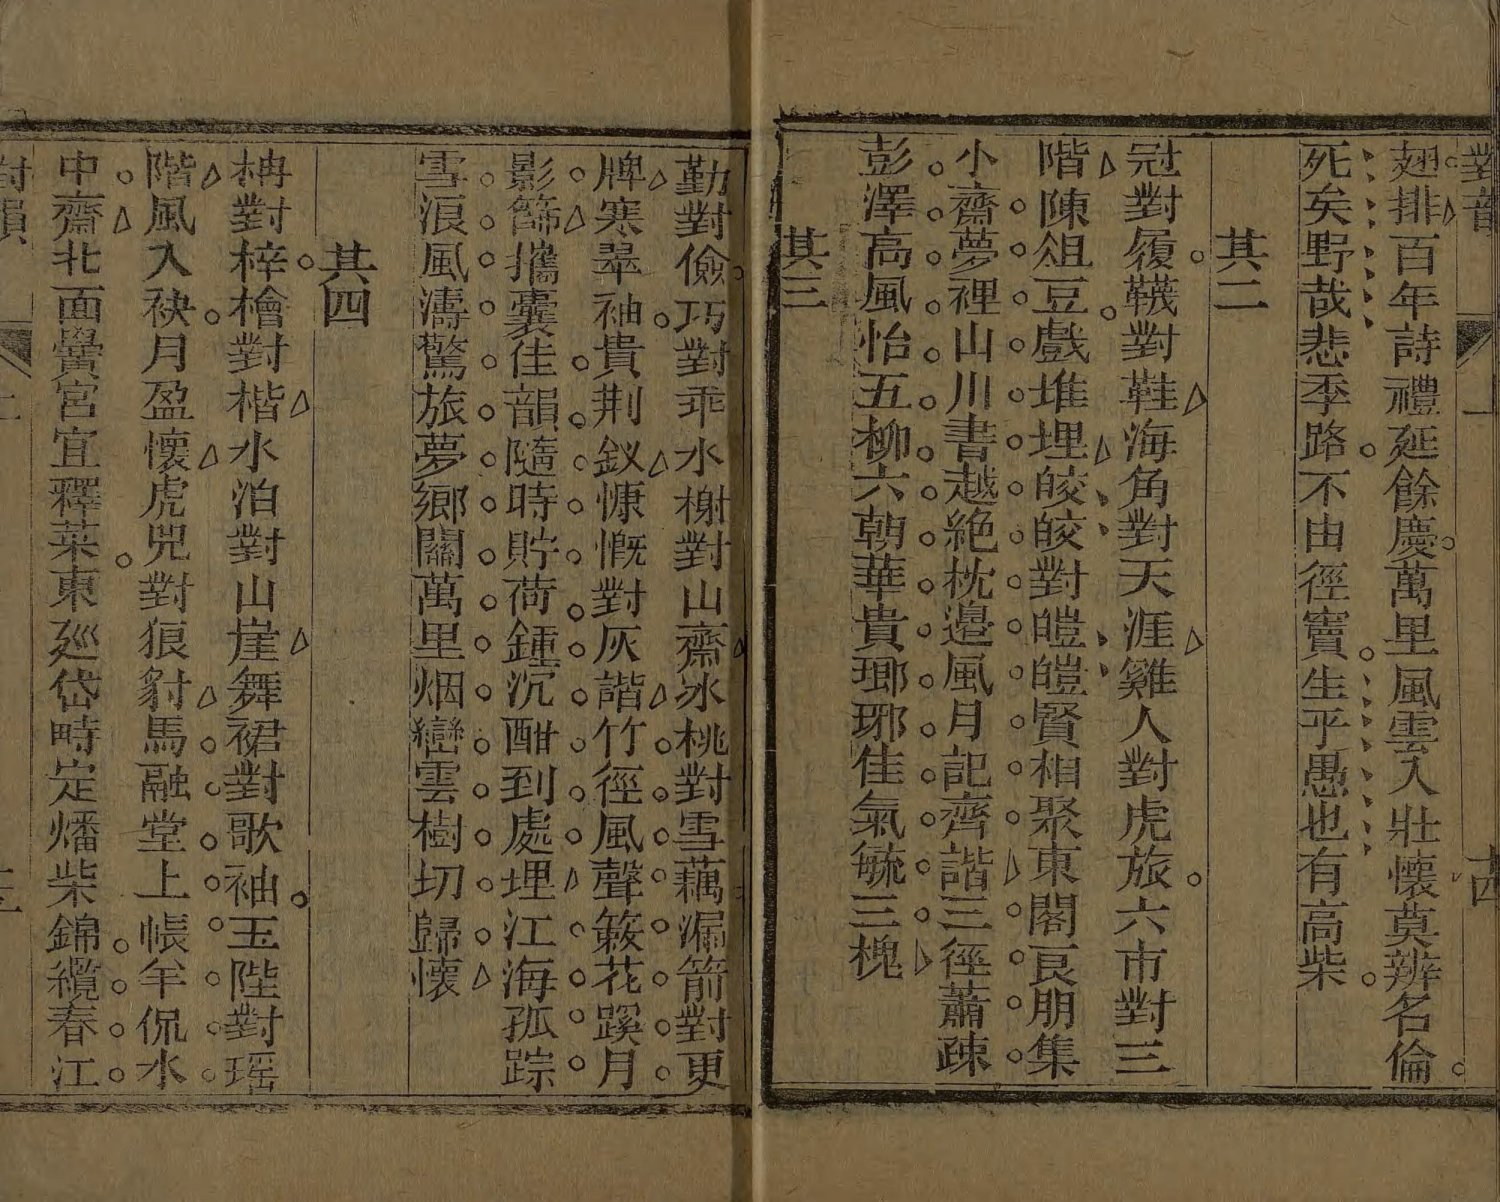 對韻 十四
翅排百年詩禮延餘慶萬里風雲入壯懷莫辨名倫
死矣野哉悲季路不由徑竇生乎愚也有高柴
其二
冠對履襪對鞋海角對天涯雞人對虎旅六市對三
階陳俎豆戲堆埋皎皎對皚皚賢相聚東閣良朋集
小齋夢裡山川書越絕枕邊風月記齊諧三徑蕭疎
彭澤高風怡五柳六朝華貴瑯琊佳氣毓三槐
其三
勤對儉巧對乖水榭對山齋冰桃對雪藕漏箭對更
牌寒翠袖貴荆釵慷慨對灰諧竹徑風聲簌花蹊月
影篩攜囊佳韻隨時貯荷鍾沉酣到處埋江海孤踪
雪浪風濤驚旅夢鄉關萬里烟巒雲樹切歸懷
其四
梅對梓檜對楷水泊對山崖舞裙對歌袖玉陛對瑶
階風入袂月盈懷虎兕對狼豺馬融堂上帳羊侃水
中齋北面黌宮宜釋菜東廵岱畤定燔柴錦纜春江
對韻